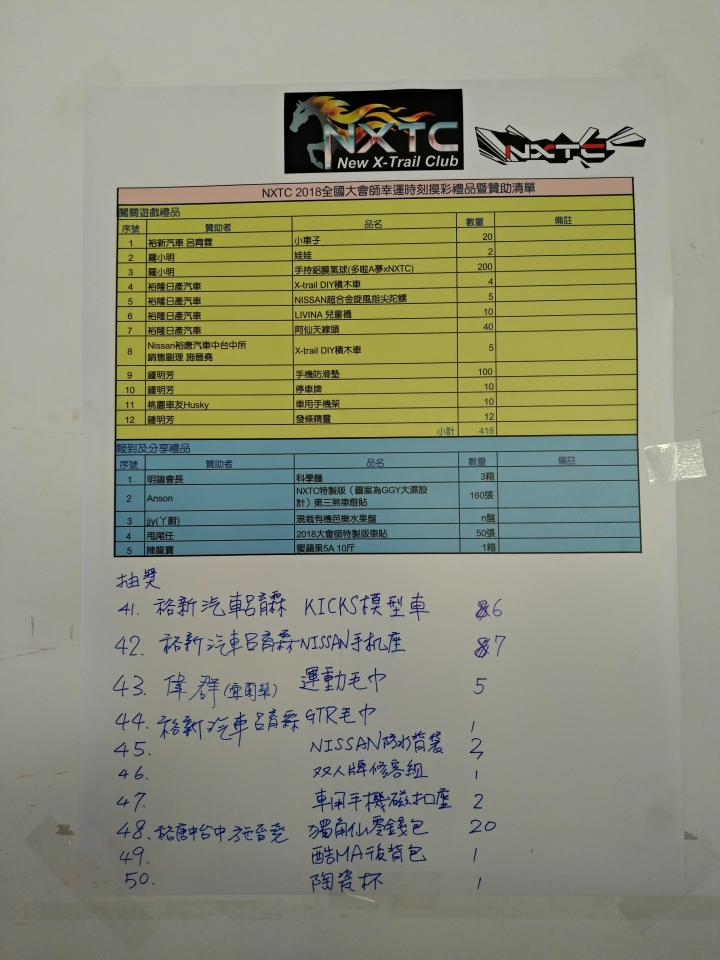 NXTC
New X-Trail Club
NXTC
NXTC 2018全國大會師幸運時刻摸彩禮品暨贊助清單
闖關遊戲禮品
序號 贊助者 品名 數量 備註
1 裕新汽車 呂育霖 小車子 20
2 羅小明 娃娃 2
3 羅小明 手持鋁膜氣球(多啦A夢xNXTC) 200
4 裕隆日產汽車 X-trail DIY積木車 4
5 裕隆日產汽車 NISSAN超合金旋風指尖陀螺 5
6 裕隆日產汽車 LIVINA 兒童襪 10
7 裕隆日產汽車 阿仙天線頭 40
8 Nissan裕唐汽車中台中所 X-trail DIY積木車 5
銷售副理 施晉堯
9 鍾明芳 手機防滑墊 100
10 鍾明芳 停車牌 10
11 桃園車友Husky 車用手機架 10
12 鍾明芳 發條精靈 12
小計 418
報到及分享禮品
序號 贊助者 品名 數量 備註
1 明諭會長 科學麵 3箱
2 Anson NXTC特製版（圖案為GGY大濕設 160張
計）第三煞車燈貼
3 jjy(丫廚) 現栽有機芭樂水果盤 n盤
4 甩尾任 2018大會師特製版車貼 50張
5 陳龍寶 蜜蘋果5A 10斤 1箱
抽獎
41. 裕新汽車呂育霖 KICKS模型車 6
42. 裕新汽車呂育霖 NISSAN手机座 7
43. 偉群 運動毛巾 5
44. 裕新汽車呂育霖 GTR毛巾 1
45. NISSAN防水背袋 2
46. 双人牌修容組 1
47. 車用手機磁扣座 2
48. 裕唐中台中施晉堯 獨角仙零錢包 20
49. 酷MA後背包 1
50. 陶瓷杯 1